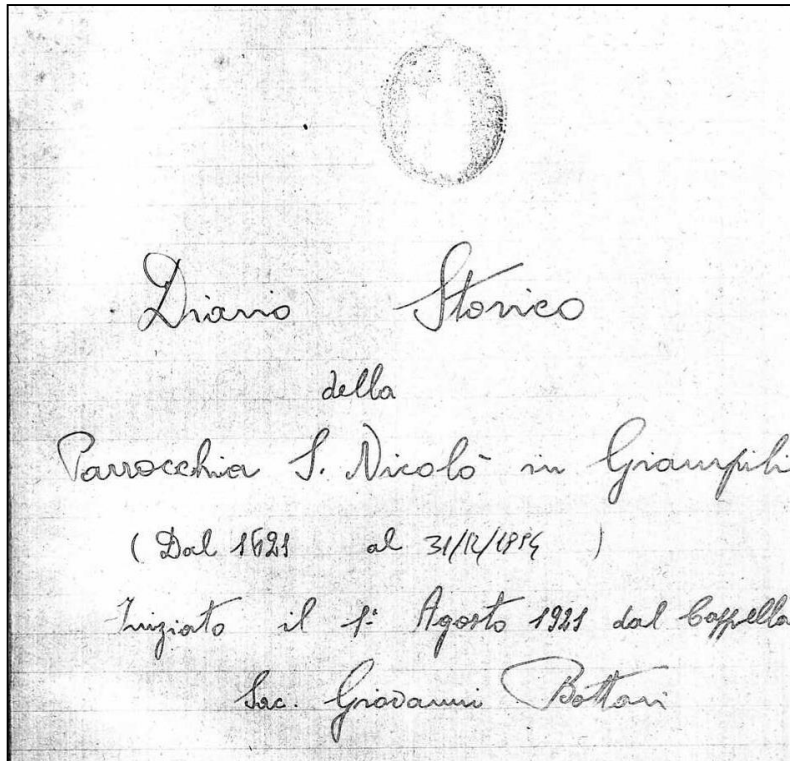 Diario Storico
della
Parrocchia S. Nicolò in Giampili
(Dal 1621 al 31/12/1994)
Iniziato il 1° Agosto 1921 dal Cappella
Sac. Giovanni Bottari